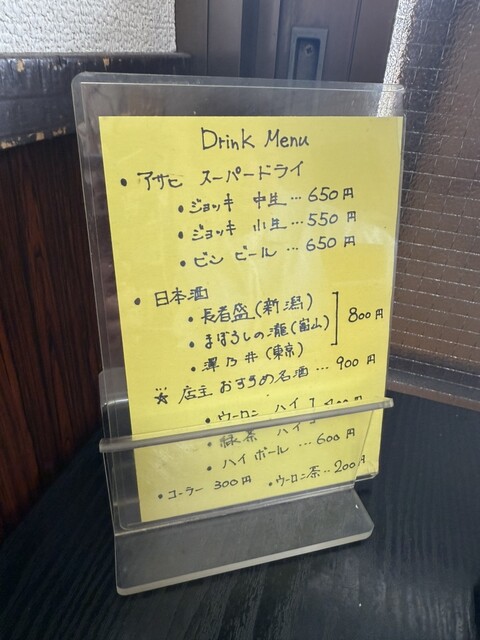 Drink Menu
・アサヒ スーパードライ
・ジョッキ 中生…650円
・ジョッキ 小生…550円
・ビン ビール…650円
・日本酒
・長者盛(新潟)
・まぼろしの瀧(富山) 800円
・澤乃井(東京)
☆店主 おすすめ名酒…900円
・ウーロン ハイ
緑茶 ハイ
・ハイボール…600円
・コーラー 300円 ・ウーロン茶…200円